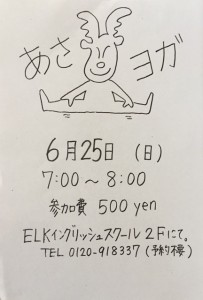 あさ ヨガ
6月25日 (日)
7:00〜8:00
参加費 500 yen
ELKイングリッシュスクール 2Fにて。
TEL 0120-918337 (予約優)